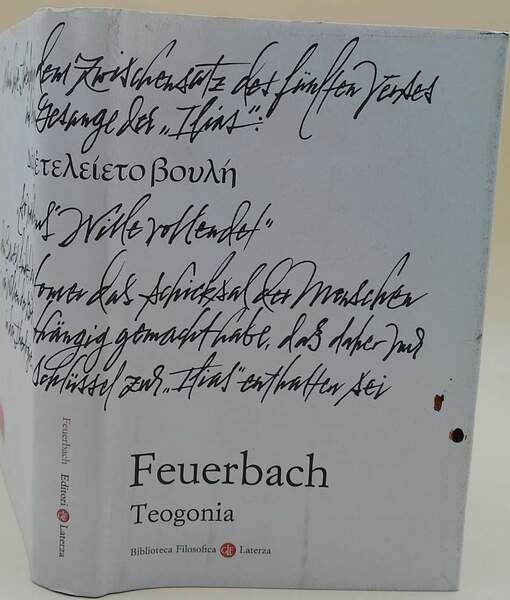 dem Zwischensatz des fünften Verses
Gesange der „Ilias":
ἐτελείετο βουλή
Wille vollendet"
das Schicksal der Menschen
gemacht habe, daß daher nur
Schlüssel zur „Ilias" enthalten sei
Feuerbach
Teogonia
Biblioteca Filosofica Laterza
Feuerbach Editori Laterza